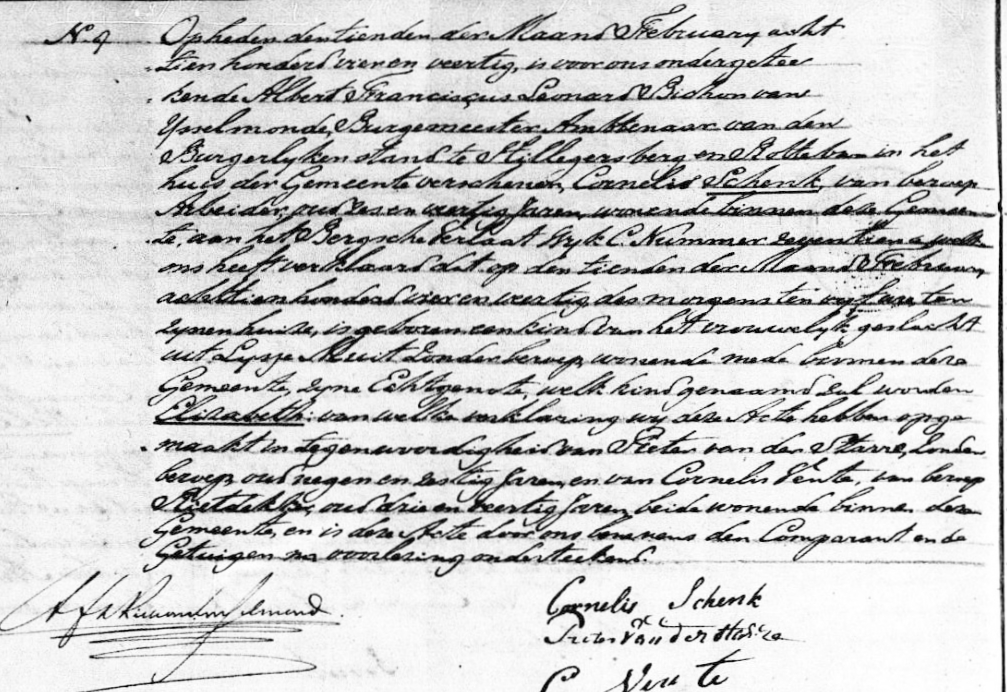 N. 9 Op heden den tienden der Maand February acht
tien honderd vier en veertig, is voor ons ondergetee
kende Albert Franciscus Leonard Bichon van
Ysselmonde, Burgemeester Ambtenaar van den
Burgerlyken stand te Hillegersberg en Rotteban in het
huis der Gemeente verschenen, Cornelis Schenk, van beroep
Arbeider, oud zes en veertig Jaren, wonende binnen deze Gemeen
te, aan het Bergsche Verlaat Wyk C. Nummer zeventien a welke
ons heeft verklaard dat op den tienden der Maand February
achttienhonderd vier en veertig des morgens ten vyf uuren
zynen huize, is geboren een kind van het vrouwelyk geslacht
uit Lysje Muit zonder beroep, wonende mede binnen deze
Gemeente, zyne Echtgenote, welk kind genaamd zal worden
Elizabeth: van welke verklaring wy deze Acte hebben opge
maakt in tegenwoordigheid van Pieter van der Starre, zonder
beroep, oud negen en zestig Jaren, en van Cornelis Vente, van beroep
Rietdekker, oud drie en veertig Jaren, beide wonende binnen deze
Gemeente, en is deze Acte door ons benevens den Comparant en de
Getuigen na voorlezing onderteekend.
Cornelis Schenk
Pieter van der Starre
C Vente